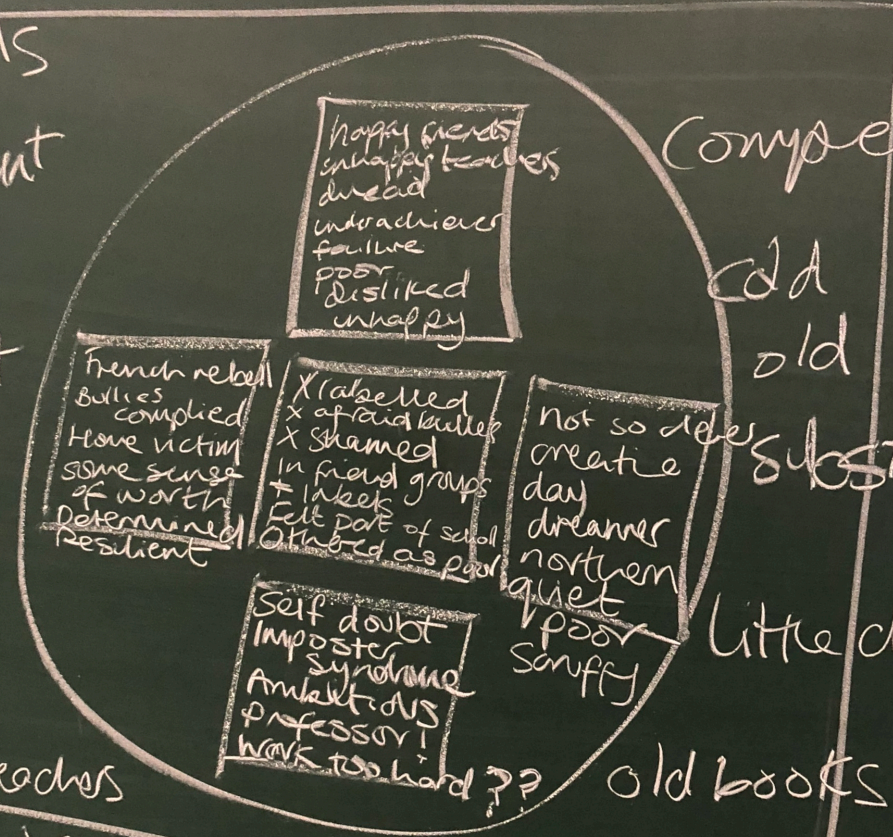 happy friends
unhappy teachers
dread
underachiever
failure
poor
disliked
unhappy
French rebel
Bullies
complied
Home victim
some sense
of worth
Determined
Resilient
X labelled
X afraid bullies
X shamed
In friend groups
+ labels
Felt part of school
Othered as poor
not so clever
creative
day
dreamer
northern
quiet
poor
scruffy
Self doubt
Imposter
syndrome
Ambitious
Professor!
Work too hard??
Compe
cold
old
subst
little c
old books